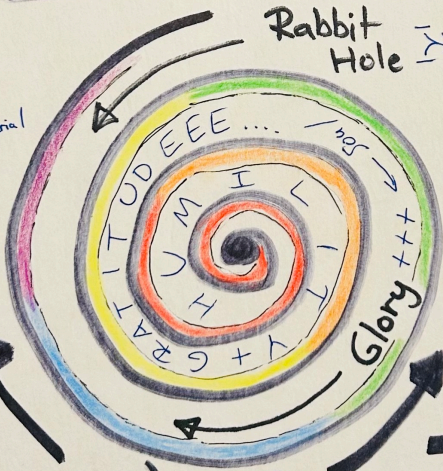 Rabbit
Hole
HUMILITY + GRATITUDEEE.... / Joy → +++
Glory